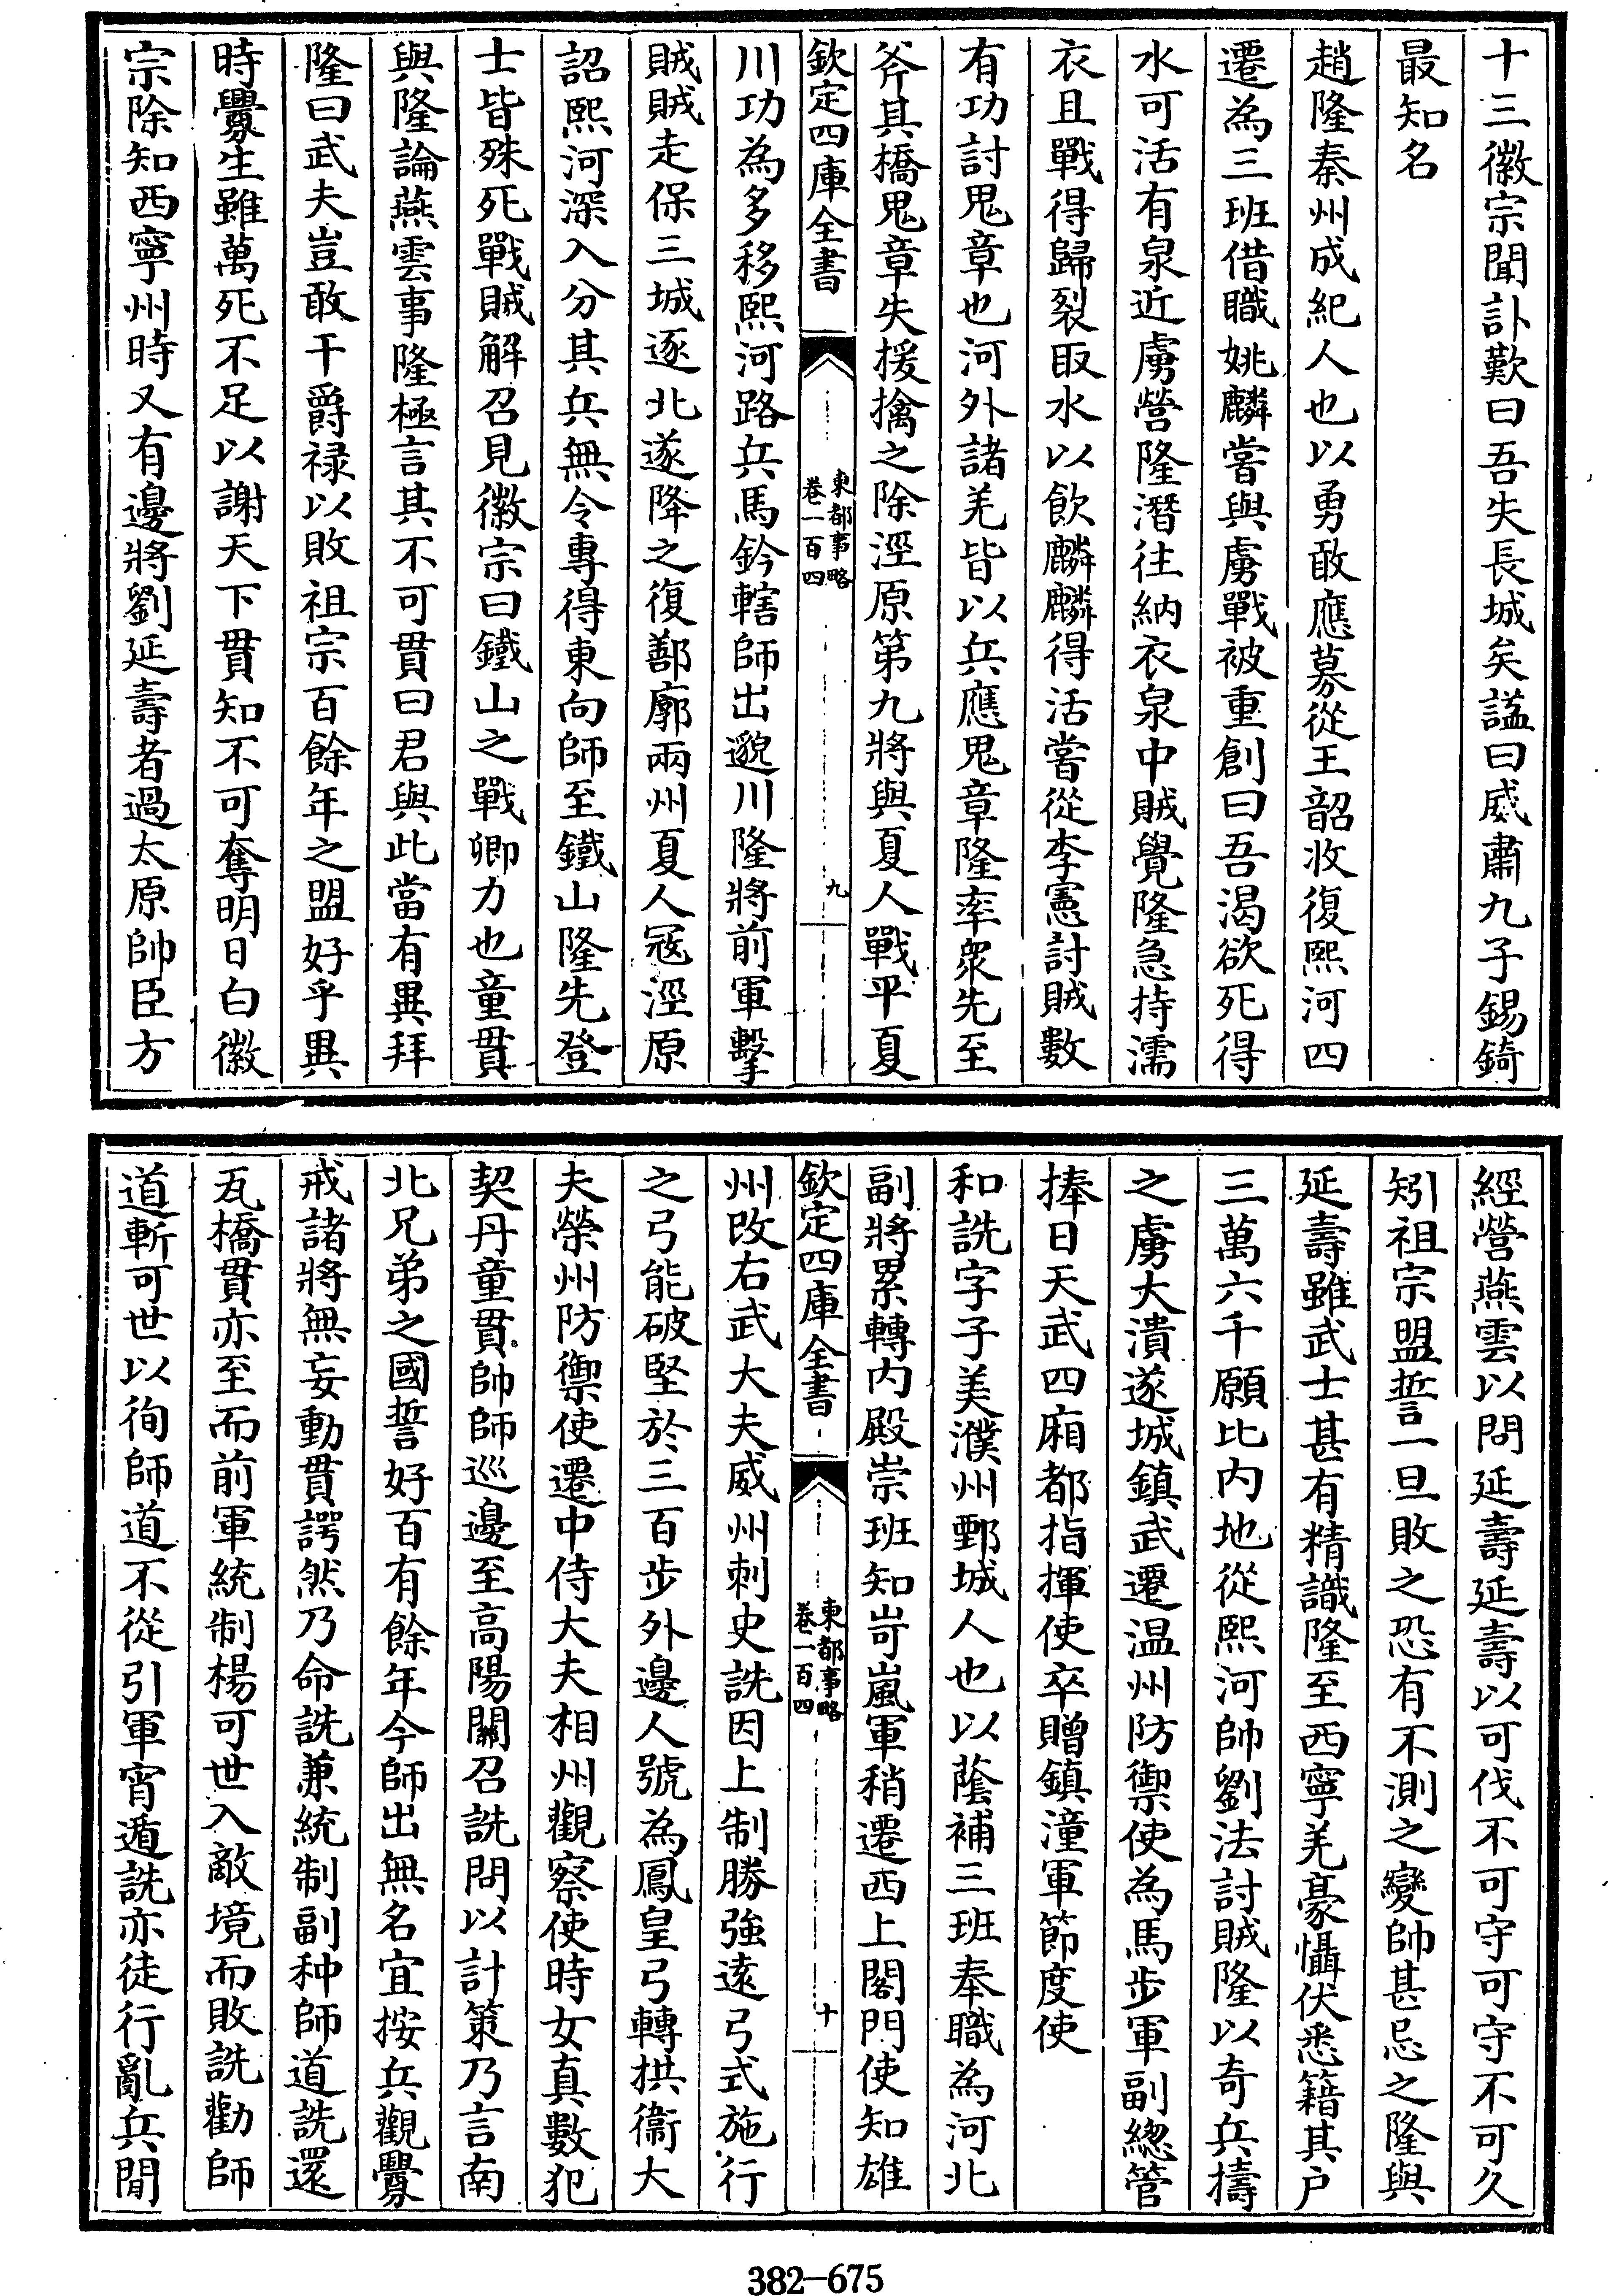 十三徽宗聞訃歎曰吾失長城矣諡曰威肅九子錫錡
最知名
趙隆秦州成紀人也以勇敢應募從王韶收復熙河四
遷為三班借職姚麟嘗與虜戰被重創曰吾渴欲死得
水可活有泉近虜營隆潛往納衣泉中賊覺隆急持濡
衣且戰得歸裂取水以飲麟麟得活嘗從李憲討賊數
有功討鬼章也河外諸羌皆以兵應鬼章隆率衆先至
斧其橋鬼章失援擒之除涇原第九將與夏人戰平夏
欽定四庫全書
東都事略
卷一百四
九
川功為多移熙河路兵馬鈐轄師出邈川隆將前軍擊
賊賊走保三城逐北遂降之復鄯廓兩州夏人寇涇原
詔熙河深入分其兵無令專得東向師至鐵山隆先登
士皆殊死戰賊解召見徽宗曰鐵山之戰卿力也童貫
與隆論燕雲事隆極言其不可貫曰君與此當有異拜
隆曰武夫豈敢干爵祿以敗祖宗百餘年之盟好乎異
時釁生雖萬死不足以謝天下貫知不可奪明日白徽
宗除知西寧州時又有邊將劉延壽者過太原帥臣方
經營燕雲以問延壽延壽以可伐不可守可守不可久
矧祖宗盟誓一旦敗之恐有不測之變帥甚忌之隆與
延壽雖武士甚有精識隆至西寧羌豪懾伏悉籍其戶
三萬六千願比內地從熙河帥劉法討賊隆以奇兵擣
之虜大潰遂城鎮武遷温州防禦使為馬步軍副總管
捧日天武四廂都指揮使卒贈鎮潼軍節度使
和詵字子美濮州鄄城人也以蔭補三班奉職為河北
副將累轉內殿崇班知岢嵐軍稍遷西上閤門使知雄
欽定四庫全書
東都事略
卷一百四
十
州改右武大夫威州刺史詵因上制勝強遠弓式施行
之弓能破堅於三百步外邊人號為鳳皇弓轉拱衞大
夫榮州防禦使遷中侍大夫相州觀察使時女真數犯
契丹童貫帥師巡邊至高陽關召詵問以計策乃言南
北兄弟之國誓好百有餘年今師出無名宜按兵觀釁
戒諸將無妄動貫諤然乃命詵兼統制副种師道詵還
瓦橋貫亦至而前軍統制楊可世入敵境而敗詵勸師
道斬可世以徇師道不從引軍宵遁詵亦徒行亂兵間
382-675